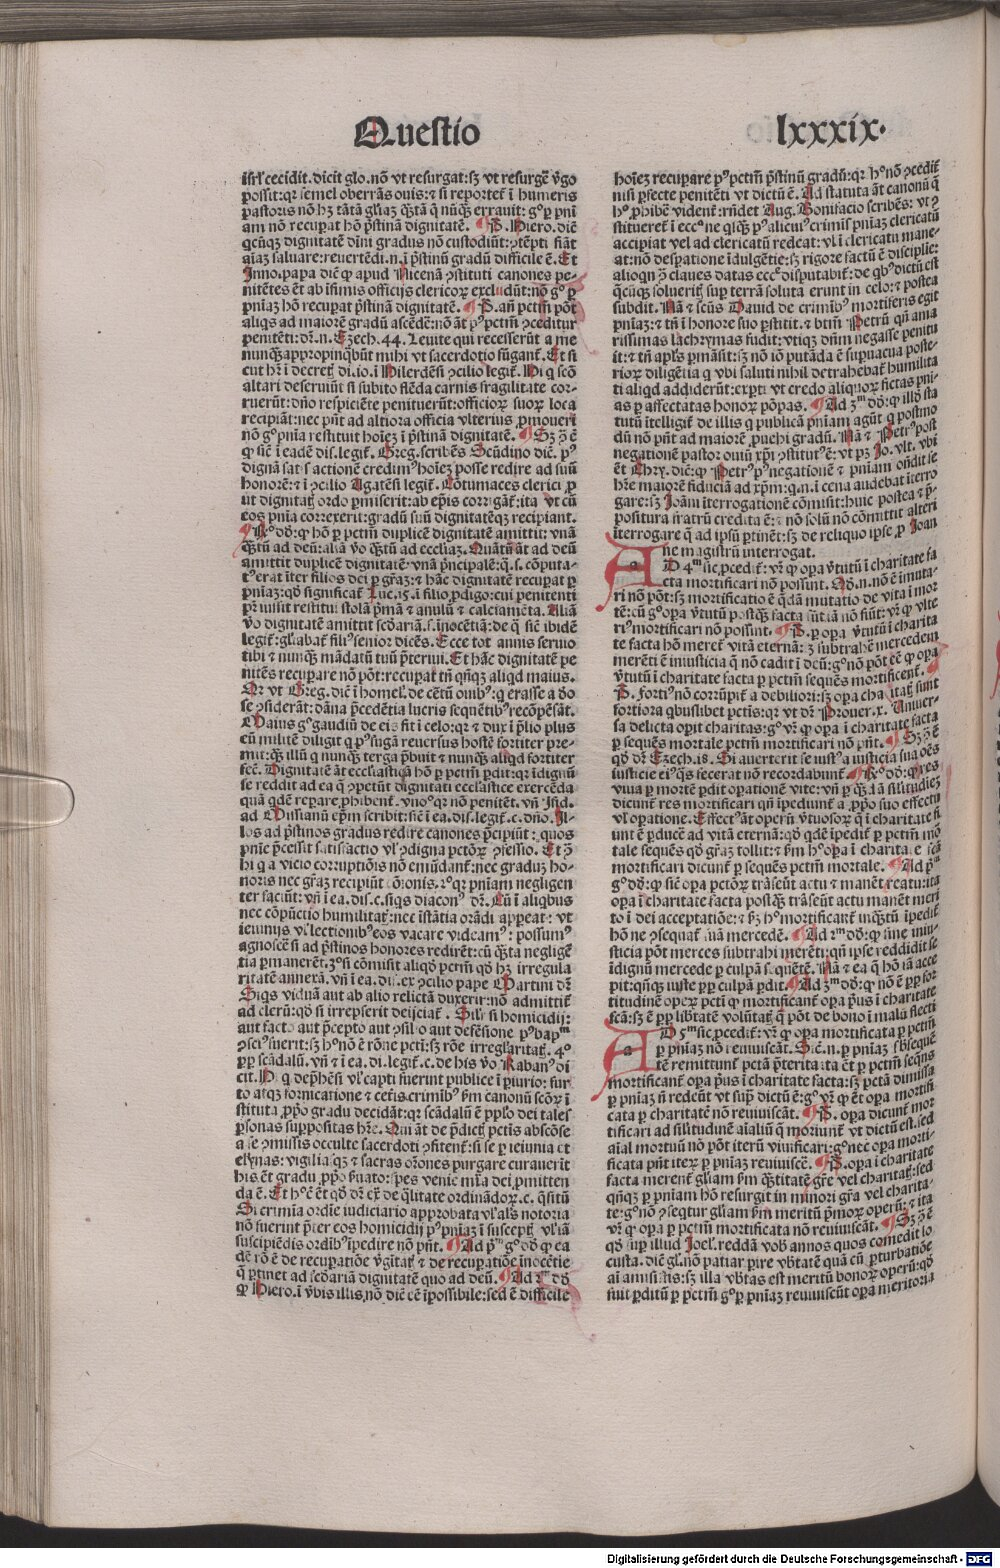 Questio lxxxix.
isrl' cecidit. dicit glo. nō vt resurgat: sꝫ vt resurgē v̄go
possit: qꝛ semel oberrās ouis: ⁊ si reportet̄ ī humeris
pastoris nō hꝫ tātā gl̄iaꝫ q̄tā q̄ nūq̄ errauit: gͦ ꝑ pn̄i
am nō recuꝑat hō pͥstinā dignitatē. ¶ P. Hiero. diē
qcūqꝫ dignitatē dīni gradus nō custodiūt: ꝯtēpti fiāt
aīaꝫ saluare: reuerti ēdi .n. ī pͥstinū gradū difficile ē. Et
Inno. papa diē ꝙ apud Nicenā ꝯstituti canones pe-
nitētes ēt ab īfimis officijs clericoꝝ excludūt: nō gͦ ꝑ
pn̄iaꝫ hō recuꝑat pͥstinā dignitatē. ¶ P. an̄ pctm̄ pōt
aliqs ad maiorē gradū ascēdē: nō āt pꝰ pctm̄ ꝯceditur
penitēti: dr̄ .n. Ezech. 44. Leuite qui recesserūt a me
nunqͣꝫ appropinqͣbūt mihi vt sacerdotio fūgant̄. Et si
cut hr̄ ī decret̄ di. io. ī Hilerdēsi ꝯcilio legit̄. Hi q̄ scō
altari deseruiūt si subito flēda carnis fragilitate cor-
ruerūt: dn̄o respiciēte penituerūt: officioꝝ suoꝝ loca
recipiāt: nec pn̄t ad altiora officia vlterius ꝓmoueri
nō gͦ pn̄ia restituit hoīeꝫ ī pͥstinā dignitatē. ¶ Sꝫ ꝯͣ ē
ꝙ sic̄ ī eadē dis. legit̄. Greg. scribēs Secūdino diē. pꝰ
dignā satisfactionē credimꝰ hoīeꝫ posse redire ad suū
honorē: ⁊ ī ꝯcilio Agatēsi legit̄. Cōtumaces clerici ꝓ
ut dignitat̄ ordo ꝑmiserit: ab ep̄is corrigāt̄: ita vt cū
eos pn̄ia correxerit: gradū suū dignitatēqꝫ recipiant.
¶ Rͦ. dd̄: ꝙ hō ꝑ pctm̄ duplicē dignitatē amittit: vnā
qͣ̄tū ad deū: aliā v̄o qͣ̄tū ad eccl̄iaꝫ. Quātū āt ad deū
amittit duplicē dignitatē: vnā pͥncipalē: qͣ .s. cōputa-
tꝰ erat īter filios dei ꝑ grāꝫ: ⁊ hāc dignitatē recuꝑat ꝑ
pn̄iaꝫ: qd̄ significat̄ Luc. i5. ī filio ꝓdigo: cui penitenti
pr̄ iussit restitui stolā pͥmā ⁊ anulū ⁊ calciamēta. Aliā
v̄o dignitatē amittit scd̄ariā .s. īnocētiā: de q̄ sic̄ ibidē
legit̄: gl̄iabat̄ filiꝰ senior dicēs. Ecce tot annis seruio
tibi ⁊ nunqͣꝫ mādatū tuū pͥterīui. Et hāc dignitatē pe
nitēs recuꝑare nō pōt: recuꝑat tn̄ qn̄qꝫ aliqd maius.
Qꝛ vt Greg. diē ī homel. de cētū ouibꝰ: q̄ errasse a deo
se ꝯsiderāt: dāna pͥcedētia lucris sequētibꝰ recōpēsāt.
Maius gͦ gaudiū de eis fit ī celo: qꝛ ⁊ dux ī pͥlio plus
eū militē diligit q̄ pꝰ fugā reuersus hostē fortiter pre-
mit: qͣꝫ illū q̄ nunqͣꝫ terga pͥbuit ⁊ nunqͣꝫ aliqd fortiter
fec̄. Dignitatē āt eccl̄iasticā hō ꝑ pctm̄ ꝑdit: qꝛ īdignū
se reddit ad ea q̄ ꝯpetūt dignitati eccl̄astice exercēda
quā qdē recuꝑare ꝓhibent̄. vnoᵒ qꝛ nō penitēt. vn̄ Isid.
ad Musianū ep̄m scribit: sic̄ ī ea. dis. legit̄. c. dn̄o. Il-
los ad pͥstinos gradus redire canones pͥcipiūt: quos
pnīe pͥcessit satisfactio vl' ꝯdigna pctōꝝ ꝯfessio. Et ꝯͣ
hi q̄ a vicio corruptiōis nō emūdant̄: nec graduꝫ ho-
noris nec grāꝫ recipiūt cōionis. 2ᵒ qꝛ pn̄iam negligen
ter faciūt: vn̄ ī ea. dis. c. siqs diaconꝰ dr̄. Cū ī aliqbus
nec cōpūctio humilitat̄: nec īstātia orādi appeat: vt
ieiunijs vl' lectionibꝰ eos vacare videamꝰ: possumꝰ
agnoscē si ad pͥstinos honores redirēt: cū q̄ta negligē
tia ꝑmanerēt. 3ᵒ si cōmisit aliqd̄ pctm̄ qd̄ hꝫ irregula
ritatē annexā. vn̄ ī ea. dis. ex ꝯcilio pape Martini dr̄
Siqs viduā aut ab alio relictā duxerit: nō admittit̄
ad clerū: qd̄ si irrepserit deijciat̄. Silr̄ si homicidij:
aut facto aut pͥcepto aut ꝯsilio aut defēsione pꝰ bapᵐ
ꝯsciꝰ fuerit: sꝫ hͦ nō ē rōne pcti: sꝫ rōe irregl'aritat̄. 4ᵒ
ꝓpͥ scādalū. vn̄ ⁊ ī ea. di. legit̄. c. de his v̄o Rabanꝰ di
cit. Hi q̄ depͥhēsi vl' capti fuerint publice ī piurio: fur
to atqꝫ fornicatione ⁊ ceteris crimībꝰ scd̄m canonū scōꝝ ī
stituta ꝓpͥo gradu decidāt: qꝛ scādalū ē pplo dei tales
ꝑsonas suppositas hr̄e. Qui āt de pͥdictis pctis abscōse
a se ꝯmissis occulte sacerdoti ꝯfitent̄: si se ꝑ ieiunia et
elynas: vigiliasqꝫ ⁊ sacras or̄ones purgare curauerit
his ēt gradu ꝓpͥo seruato: spes venie mīa dei ꝓmitten
da ē. Et hͦ ē ēt qd̄ dr̄ ex̄ de qͣlitate ordinādoꝝ. c. qͣsitū
Si crimīa ordīe iudiciario approbata vl' al's notoria
nō fuerint pͥter eos homicidij pꝰ pn̄iaꝫ ī suscept̄ vl' iā
suscipiēdis ordībꝰ īpedire nō pn̄t. ¶ Ad pͥmᵐ gͦ dd̄ ꝙ ea
dē rō ē de recuꝑatiōe v̄gītat̄ ⁊ de recuꝑatiōe īnocētie
q̄ ꝑtinet ad scd̄ariā dignitatē quo ad deū. ¶ Ad 2ᵐ dd̄
ꝙ Hiero. ī v̄bis illis, nō diē eē īpossibile: sed ē difficile
hoīeꝫ recuꝑare pꝰ pctm̄ pͥstinū gradū: qꝛ hͦ nō ꝯcedit̄
nisi ꝑfecte penitēti vt dictū ē. Ad statuta āt canonū q̄
hͦ ꝓhibē vident̄: rn̄det Aug. Bonifacio scribēs: vt ꝯ
stitueret̄ ī ecc̄ne qͥsqͣꝫ pꝰ alicuiꝰ crimīs pn̄iaꝫ clericatū
accipiat vel ad clericatū redeat: vl' ī clericatu mane-
at: nō desꝑatione īdulgētie: sꝫ rigore factū ē disciplīe:
alioqn ꝯͣ claues datas eccl'e disputabit̄: de qͥbꝰ dictū est
q̄cūqꝫ soluerit̄ suꝑ terrā soluta erunt in celo: ⁊ postea
subdit. Nā ⁊ scūs Dauid de crimībꝰ mortiferis egit
pn̄iaꝫ: ⁊ tn̄ ī honore suo ꝑstitit. ⁊ btm̄ Petrū qn̄ ama
rissimas lachrymas fudit: vtiqꝫ dn̄m negasse penitu
it: ⁊ tn̄ apl's ꝑmāsit: sꝫ nō iō putāda ē suꝑuacua poste-
rioꝝ diligētia q̄ vbi saluti nihil detrahebat̄ humilita
ti aliqd addiderūt: expti vt credo aliquoꝝ fictas pni-
as ꝑ affectatas honoꝝ pōpas. ¶ Ad 3ᵐ dd̄: ꝙ illd̄ sta
tutū ītelligit̄ de illis q̄ publicā pn̄iam agūt q̄ postmo
dū nō pn̄t ad maiorē ꝓuehi gradū. Nā ⁊ Petrꝰ post
negationē pastor ouiū xp̄i ꝯstitutꝰ ē: vt pꝫ Jo. vlt. vbi
ēt Chry. diē: ꝙ Petrꝰ pꝰ negationē ⁊ pn̄iam on̄dit se
hr̄e maiorē fiduciā ad xp̄m: q̄ .n. ī cena audebat īterro
gare: sꝫ Joāni īterrogationē cōmisit: huic postea ⁊ pͥ-
positura fratrū credita ē: ⁊ nō solū nō cōmittit alteri
īterrogare q̄ ad ipsū ꝑtinēt: sꝫ de reliquo ipse ꝓ Joan
ne magistrū interrogat.
AD 4ᵐ sic ꝓcedit̄: vr̄ ꝙ oꝑa v̄tutū ī charitate fa
cta mortificari nō possunt. Qd̄ .n. nō ē īmuta-
ri nō pōt: sꝫ mortificatio ē q̄dā mutatio de vita ī mor
tē: cū gͦ oꝑa v̄tutū postqͣꝫ facta sūt iā nō sint: vr̄ ꝙ vlte
riꝰ mortificari nō possunt. ¶ P. ꝑ oꝑa v̄tutū ī charita
te facta hō meret̄ vitā eternā: ꝫ subtrahē mercedem
merēti ē iniusticia q̄ nō cadit ī deū: gͦ nō pōt eē ꝙ oꝑa
v̄tutū ī charitate facta ꝑ pctm̄ sequēs mortificent̄. ¶
P. fortiꝰ nō corrūpit̄ a debiliori: sꝫ oꝑa charitat̄ sunt
fortiora qͥbuslibet pctis: qꝛ vt dr̄ Prouer. x. Vniuer-
sa delicta opit charitas: gͦ vr̄ ꝙ oꝑa ī charitate facta
ꝑ sequēs mortale pctm̄ mortificari nō pn̄t. ¶ Sꝫ ꝯͣ ē
qd̄ dr̄ Ezech. i8. Si auerterit se iustꝰ a iusticia sua oēs
iusticie eiꝰ qͣs fecerat nō recordabunt̄. ¶ Rͦ. dd̄: ꝙ res
viua ꝑ mortē ꝑdit oꝑationē vite: vn̄ ꝑ q̄dā sil'itudiēꝫ
dicunt̄ res mortificari qn̄ īpediunt̄ a ꝓpͥo suo effectu
vl' oꝑatione. Effectꝰ āt operū v̄tuosoꝝ q̄ ī charitate fi
unt ē ꝑducē ad vitā eternā: qd̄ qdē īpedit̄ ꝑ pctm̄ mō
tale sequēs qd̄ grāꝫ tollit: ⁊ scd̄m hͦ oꝑa ī charitate fcā
mortificari dicunt̄ ꝑ sequēs pctm̄ mortale. ¶ Ad pͥᵐ
gͦ dd̄: ꝙ sic̄ oꝑa pctōꝝ trāseūt actu ⁊ manēt reatu: ita
oꝑa ī charitate facta postqͣꝫ trāseūt actu manēt meri
to ī dei acceptatiōe: ⁊ scd̄m hͦ mortificant̄ inqͣ̄tū īpedit̄
hō ne ꝯsequat̄ suā mercedē. ¶ Ad 2ᵐ dd̄: ꝙ sine iniu-
sticia pōt merces subtrahi merēti: qn̄ ipse reddidit se
īdignū mercede ꝑ culpā sequētē. Nā ⁊ ea q̄ hō iā acce
pit: qn̄qꝫ iuste ꝓp culpā ꝑdit. ¶ Ad 3ᵐ dd̄: ꝙ nō ē ꝓp for
titudinē operꝫ pcti ꝙ mortificant̄ oꝑa pͥus ī charitate
fcā: sꝫ ē ꝓp libtatē volūtat̄ q̄ pōt de bono ī malū flecti
AD 5ᵐ sic ꝓcedit̄: vr̄ ꝙ oꝑa mortificata ꝑ pctm̄
ꝑ pn̄iaꝫ nō reuiuiscāt. Sic̄ .n. ꝑ pn̄iaꝫ sbseque
tē remittunt̄ pctā pͥterita: ita ēt ꝑ pctm̄ seqns
mortificant̄ oꝑa pͥus ī charitate facta: sꝫ pctā dimissa
ꝑ pn̄iaꝫ nō redeūt vt supͣ dictū ē: gͦ vr̄ ꝙ ēt oꝑa mortifi
cata ꝑ charitatē nō reuiuiscāt. ¶ P. oꝑa dicunt̄ mor
tificari ad sil'itudinē aīaliū q̄ moriunt̄ vt dictū est. sed
aīal mortuū nō pōt iterū viuificari: gͦ nec oꝑa morti-
ficata pn̄t iteꝝ ꝑ pn̄iaꝫ reuiuiscē. ¶ P. oꝑa ī charitate
facta merent̄ gl̄iam scd̄m q̄titatē gr̄e vel charitat̄: sed
qn̄qꝫ ꝑ pn̄iam hō resurgit in minori gr̄a vel charita-
te: gͦ nō ꝯseqtur gl̄iam scd̄m meritū pͥmoꝝ operū: ⁊ ita
vr̄ ꝙ oꝑa ꝑ pctm̄ mortificata nō reuiuiscāt. ¶ Sꝫ ꝯͣ ē
qd̄ suꝑ illud Joel. reddā vobͣ annos quos comedit lo
custa. diē gl. nō patiar ꝑire vbtatē quā cū ꝑturbatiōe
ai amisistis: sꝫ illa vbtas est meritū bonoꝝ operū: qd̄
fuit ꝑditū ꝑ pctm̄ gͦ ꝑ pn̄iaꝫ reuiuiscūt oꝑa meritoria
Digitalisierung gefördert durch die Deutsche Forschungsgemeinschaft - DFG